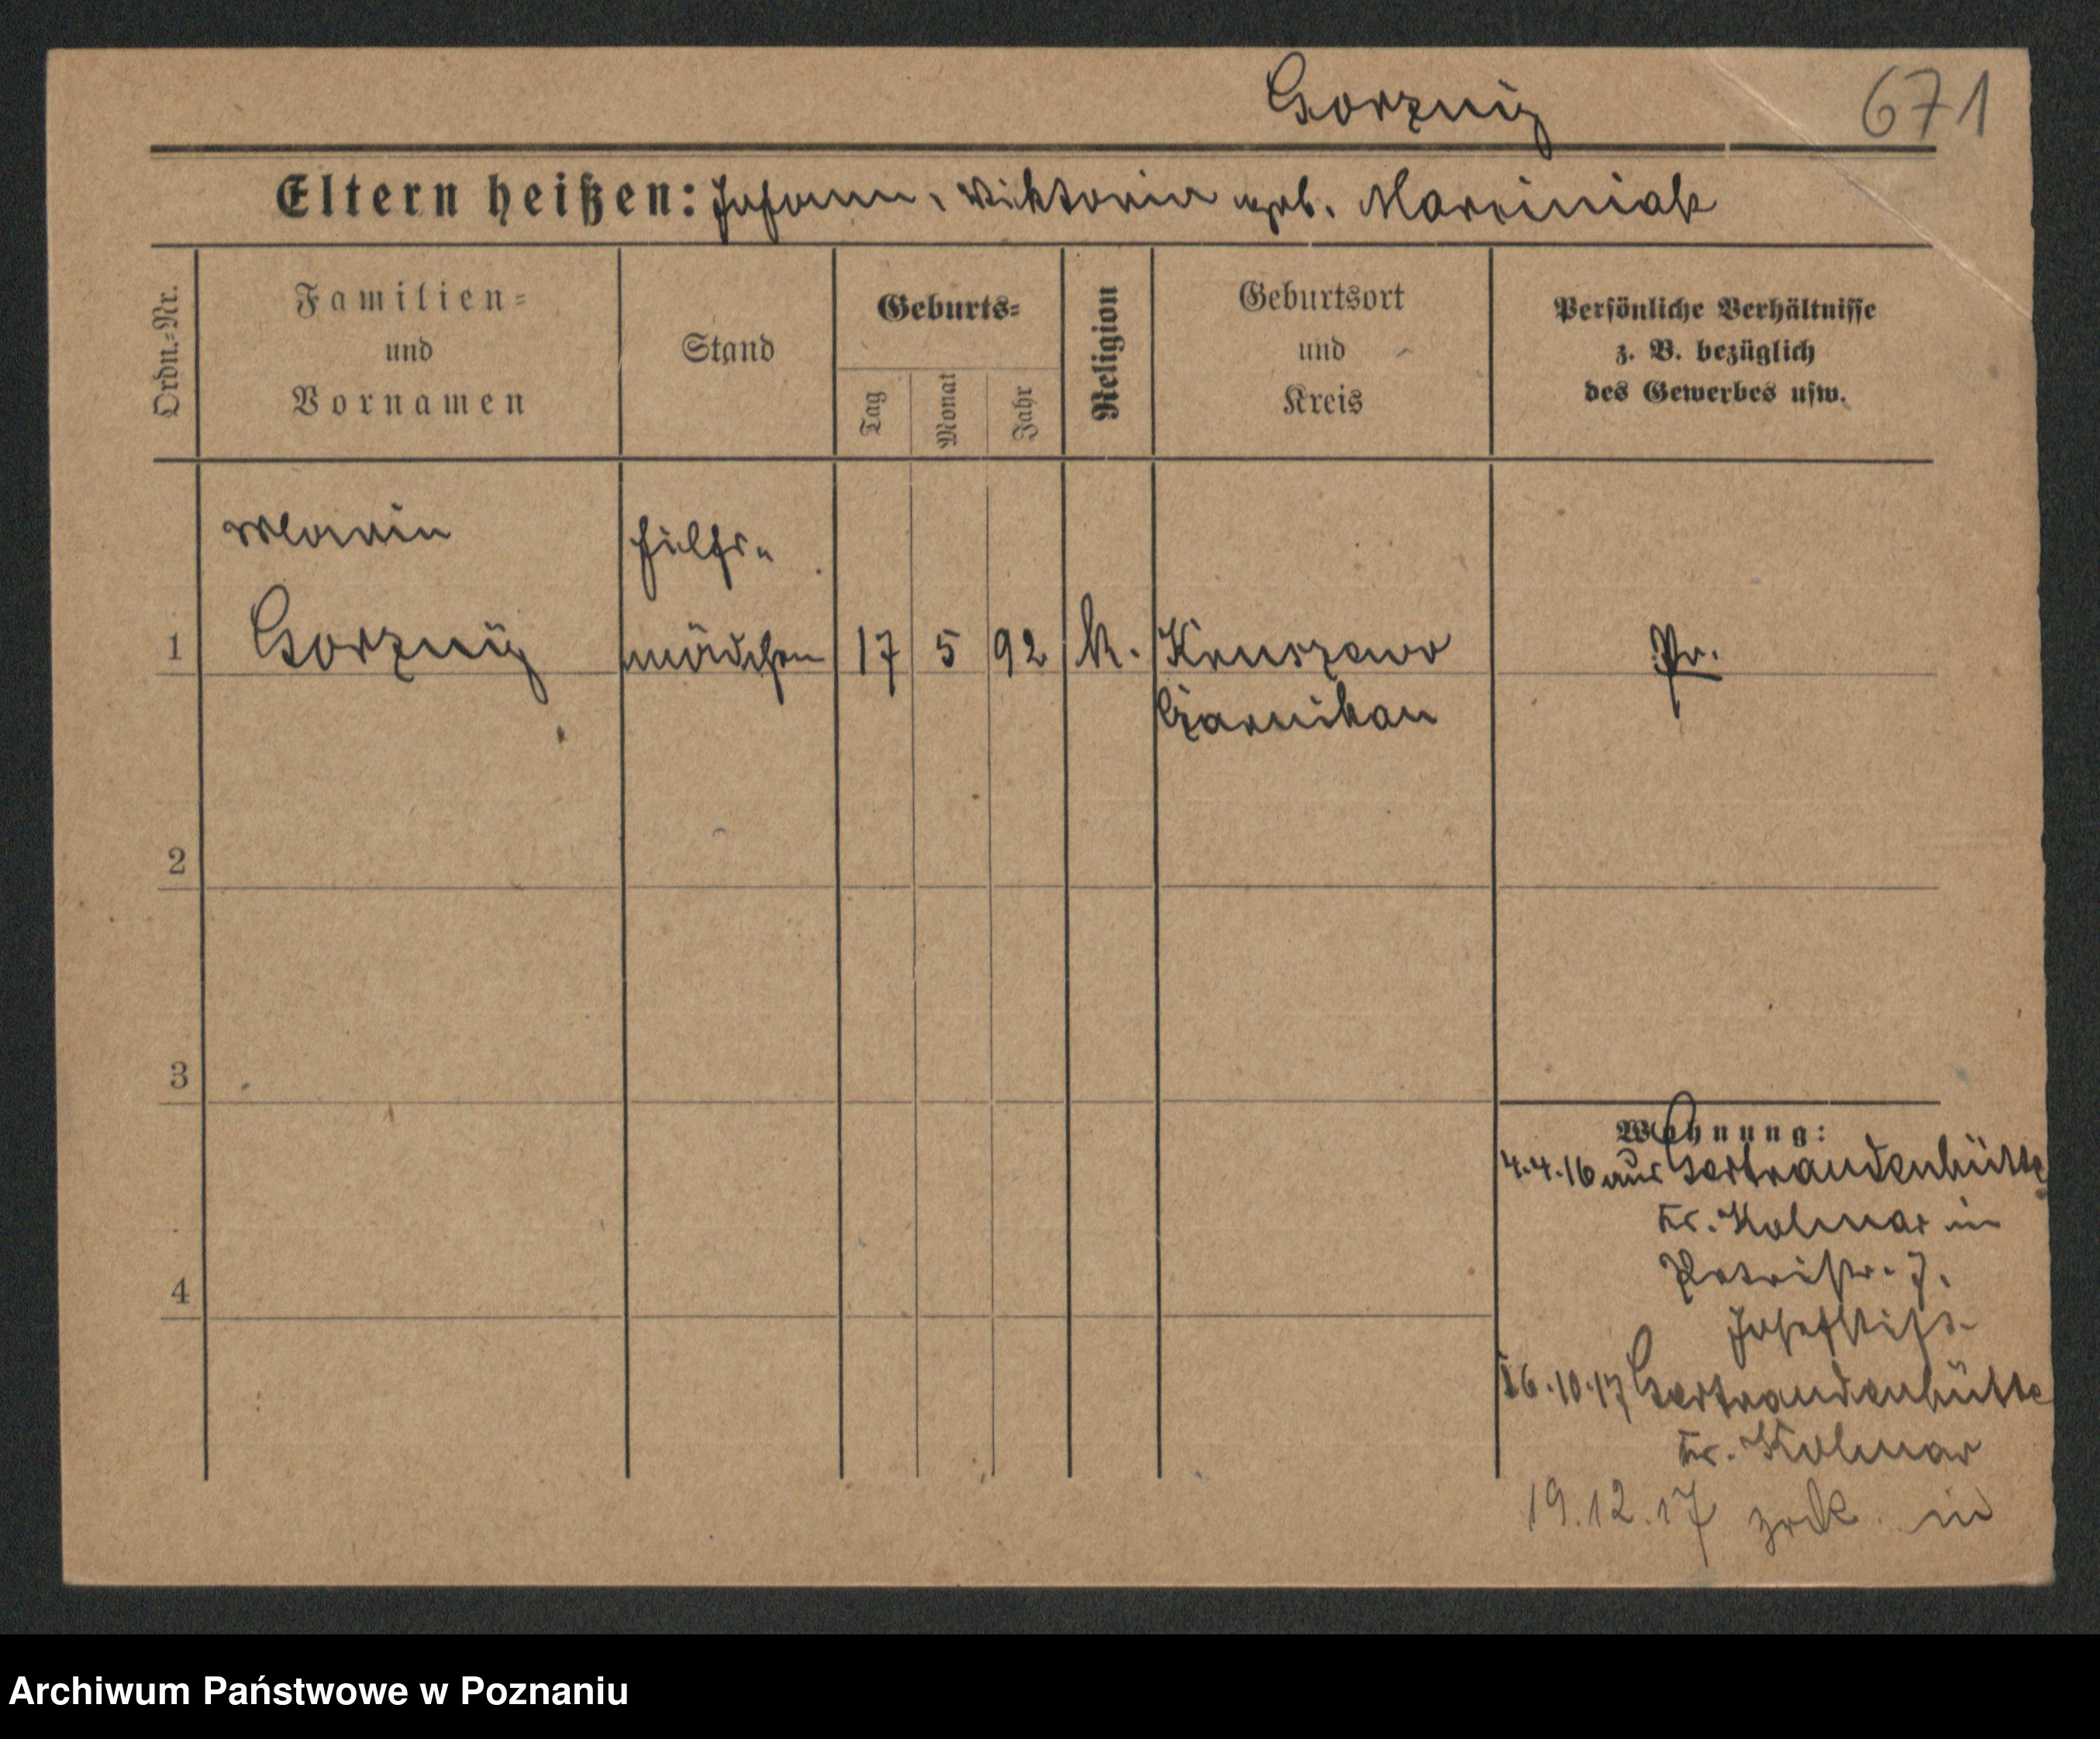 Gorznij
671
Eltern heißen: Johann, Viktoria geb. Marciniak
Ordn.-Nr.
Familien-
und
Vornamen
Stand
Geburts-
Tag
Monat
Jahr
Religion
Geburtsort
und
Kreis
Persönliche Verhältnisse
z. B. bezüglich
des Gewerbes usw.
Maria
Gorznij
Hülfs-
mädchen
1
17 5 92
K.
Kruszewo
Czarnikau
Pr.
2
3
4
Wohnung:
4.4.16 aus Gertraudenhütte
Kr. Kolmar in
Petristr. 7.
Josefstift
16.10.17 Gertraudenhütte
Kr. Kolmar
19.12.17 zrck. in
Archiwum Państwowe w Poznaniu